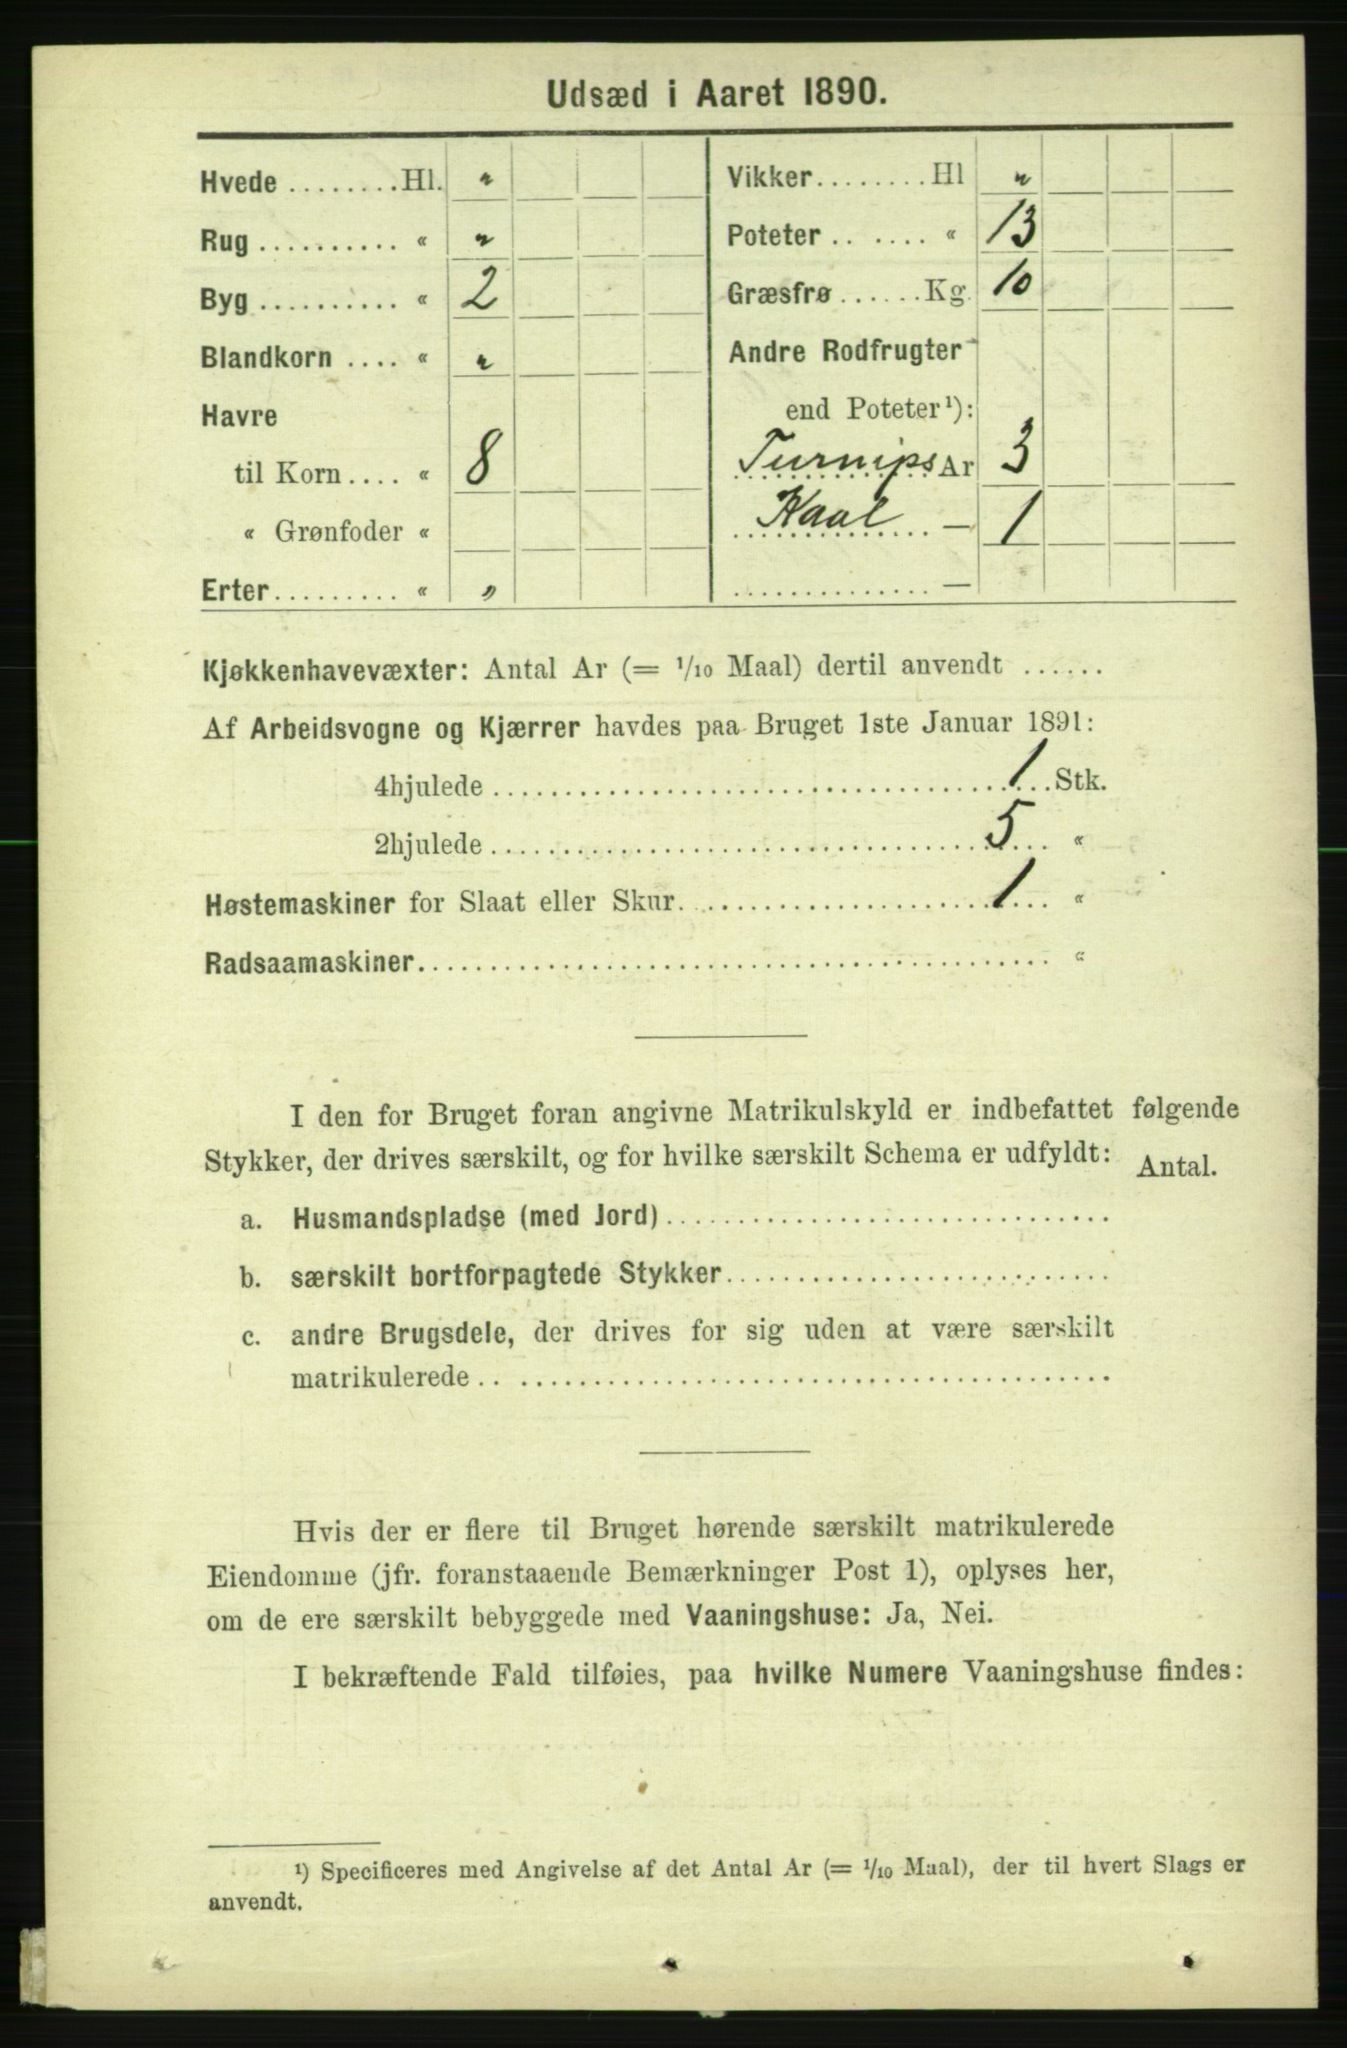 Udsæd i Aaret 1890.
Hvede ........Hl. "
Rug .......... « "
Byg .......... « 2
Blandkorn .... « "
Havre
til Korn.... « 8
« Grønfoder «
Erter......... « "
Vikker........ Hl "
Poteter .. ..... « 13
Græsfrø ......Kg. 10
Andre Rodfrugter
end Poteter¹):
Turnips Ar 3
Kaal ... — 1
.............. —
Kjøkkenhavevæxter: Antal Ar (= 1/10 Maal) dertil anvendt ......
Af Arbeidsvogne og Kjærrer havdes paa Bruget 1ste Januar 1891:
4hjulede ........ 1 Stk.
2hjulede ........ 5 «
Høstemaskiner for Slaat eller Skur........ 1 «
Radsaamaskiner........ «
I den for Bruget foran angivne Matrikulskyld er indbefattet følgende
Stykker, der drives særskilt, og for hvilke særskilt Schema er udfyldt: Antal.
a. Husmandspladse (med Jord)........
b. særskilt bortforpagtede Stykker........
c. andre Brugsdele, der drives for sig uden at være særskilt
matrikulerede ........
Hvis der er flere til Bruget hørende særskilt matrikulerede
Eiendomme (jfr. foranstaaende Bemærkninger Post 1), oplyses her,
om de ere særskilt bebyggede med Vaaningshuse: Ja, Nei.
I bekræftende Fald tilføies, paa hvilke Numere Vaaningshuse findes:
¹) Specificeres med Angivelse af det Antal Ar (= 1/10 Maal), der til hvert Slags er
anvendt.